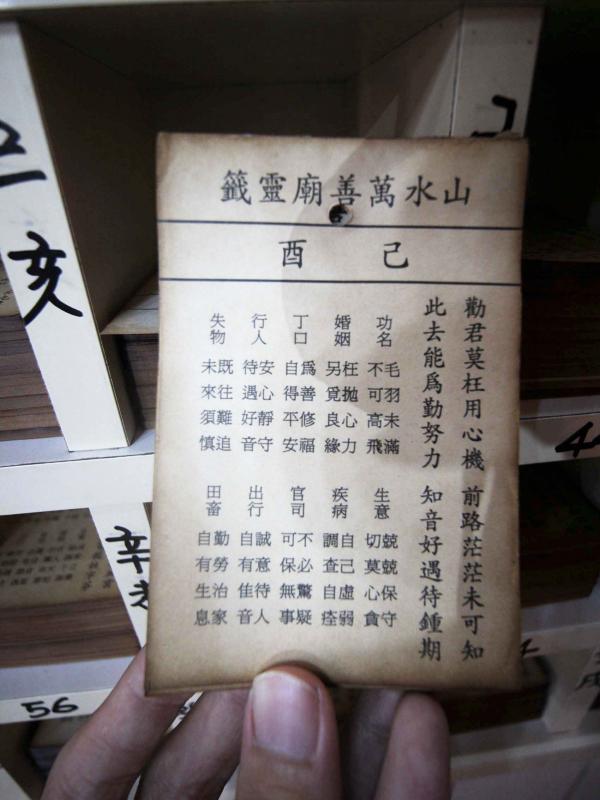 山水萬善廟靈籤
己酉
勸君莫枉用心機 前路茫茫未可知
此去能爲勤努力 知音好遇待鍾期
功名
毛羽未滿
不可高飛
婚姻
枉拋心力
另覓良緣
丁口
爲善修福
自得平安
行人
安心靜守
待遇好音
失物
既往難追
未來須慎
生意
兢兢保守
切莫心貪
疾病
自己虛弱
調查自痊
官司
不必驚疑
可保無事
出行
誠意待人
自有佳音
田畜
勤勞治家
自有生息
亥
辛
56